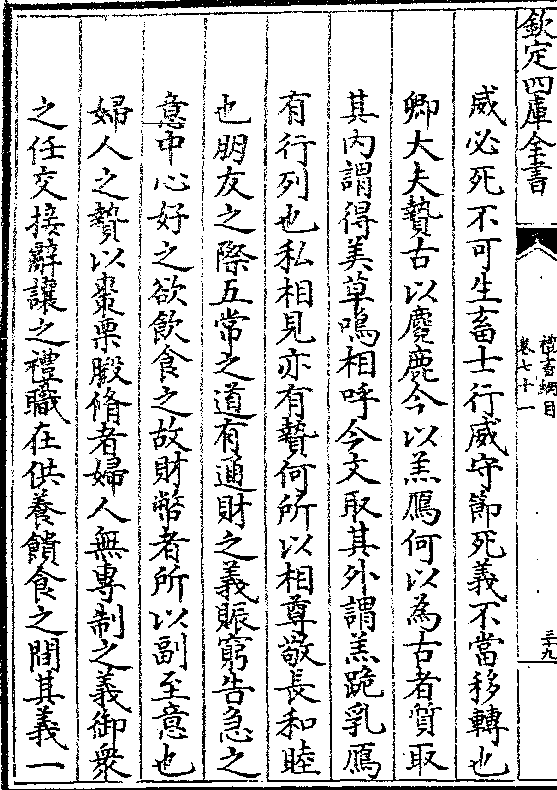 欽定四庫全書
禮書綱目
卷七十一
三十九
威必死不可生畜士行威守節死義不當移轉也
卿大夫贄古以麑鹿今以羔鴈何以為古者質取
其內謂得美草鳴相呼今文取其外謂羔跪乳鴈
有行列也私相見亦有贄何所以相尊敬長和睦
也朋友之際五常之道有通財之義賑窮告急之
意中心好之欲飲食之故財幣者所以副至意也
婦人之贄以棗栗腶脩者婦人無專制之義御衆
之任交接辭讓之禮職在供養饋食之間其義一